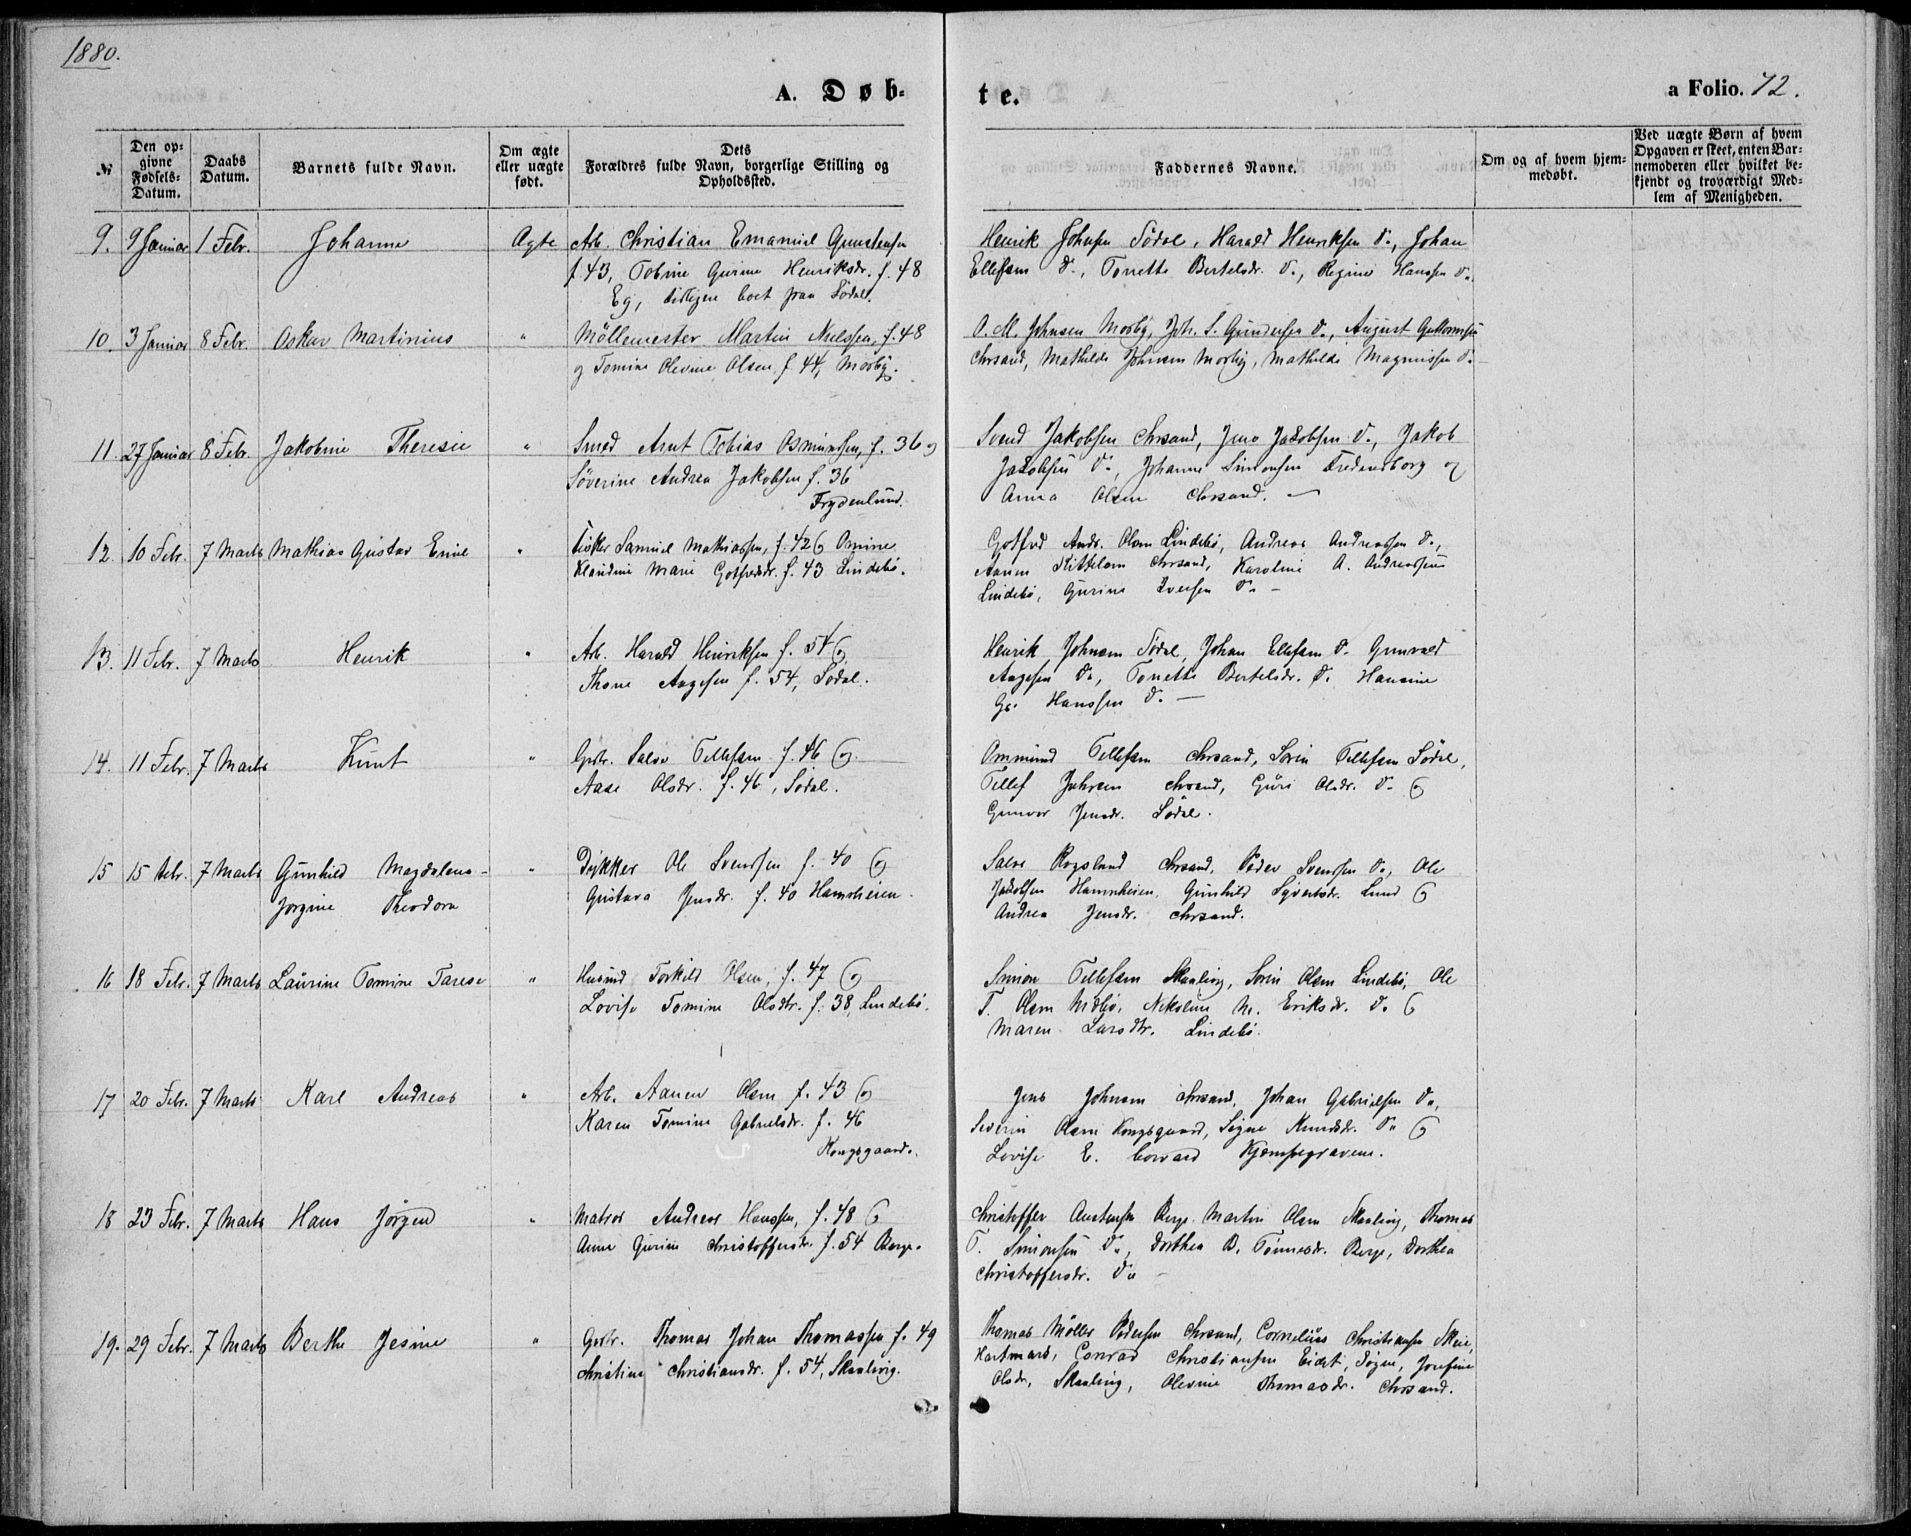 1880.
A. Døb-
te.
a Folio. 72.
№
Den op-
givne
Fødsels-
Datum.
Daabs
Datum.
Barnets fulde Navn.
Om ægte
eller uægte
født.
Dets
Forældres fulde Navn, borgerlige Stilling og
Opholdssted.
Faddernes Navne.
Om og af hvem hjem-
medøbt.
Ved uægte Børn af hvem
Opgaven er skeet, enten Bar-
nemoderen eller hvilket be-
kjendt og troværdigt Med-
lem af Menigheden.
9. 9 Januar 1 Febr. Johanne Ægte Arb. Christian Emanuel Gunstensen
f. 43, Tobine Gurine Henriksdr. f. 48
Eg, tidligere boet paa Södal.
Henrik Johnsen Södal, Harald Henriksen do., Johan
Ellefsen do., Tonette Bertelsdr. do., Regine Hanssen do.
10. 3 Januar 8 Febr. Oskar Martinius " Möllemester Martin Nielssen, f. 48
og Tomine Olevine Olsen f. 44, Mosby.
O. M. Johnsen Mosby, Joh. S. Gundersen do., August Guttormsen
Chrsand, Mathilde Johnsen Mosby, Mathilde Magnussen do.
11. 27 Januar 8 Febr. Jakobine Theresie " Smed Arnt Tobias Osmundsen, f. 36 og
Söverine Andrea Jakobsen f. 36
Frydenlund.
Svend Jakobsen Chrsand, Jens Jakobsen do., Jakob
Jakobsen do., Johanne Simonsen Fredensborg og
Anna Olsen Chrsand.
12. 10 Febr. 7 Marts Mathias Gustav Emil " Samuel Mathiassen, f. 42 og Omine
Klaudine Marie Gotfredsdr. f. 43 Lindebö.
Gotfred Andr. Olsen Lindebö, Andreas Andreassen do.,
Aanen Kittelsen Chrsand, Karoline A. Andreassen
Lindebö, Gurine Iversen do.
13. 11 Febr. 7 Marts Henrik " Arb. Harald Henriksen f. 54 og
Thone Aagesen f. 54, Södal.
Henrik Johnsen Södal, Johan Ellefsen do. Gunvald
Aagesen do., Tonette Bertelsdr. do. Hansine
G. Hanssen do.
14. 11 Febr. 7 Marts Knut " Gbr. Salve Tellefsen f. 46 og
Aase Olsdr. f. 46, Södal.
Ommund Tellefsen Chrsand, Sorin Tellefsen Södal,
Tellef Johnsen Chrsand, Guri Olsdr. do. og
Gunvor Jensdr. Södal.
15 15 Febr. 7 Marts Gunhild Magdalena
Jörgine Theodora " Dykker Ole Svenssen f. 40 og
Gustava Jensdr. f. 40 Hamreheien.
Salve Rogsland Chrsand, Peder Svenssen do., Ole
Jakobsen Hamreheien, Gunhild Syvertsdr. Lund og
Andrea Jensdr. Chrsand.
16 18 Febr. 7 Marts Laurine Tomine Tarese " Husmd Torkild Olsen, f. 47 og
Lovise Tomine Olsdtr. f. 38, Lindebö.
Simon Tellefsen Skaaleviq, Sorin Olsen Lindebö, Ole
T. Olsen Nikoline M. Eriksdr. do. og
Maren Larsdtr. Lindebö.
17 20 Febr. 7 Marts Karl Andreas " Arb. Aanen Olsen f. 43 og
Karen Tomine Gabrielsdr. f. 46
Kongsgaard.
Jens Johnsen Chrsand, Johan Gabrielsen do.,
Severin Olsen Kongsgaard, Signe Knudsdr. do. og
Lovise E. Kjempegraven.
18 23 Febr. 7 Marts Hans Jörgen " Matros Andreas Hanssen, f. 48 og
Anne Gurine Christoffersdr. f. 54 Berge.
Christoffer Austensen Berge, Martin Olsen Skaalevig, Thomas
T. Simonsen do., Dorthea B. Tönnesdr. Berge, Dorthea
Christoffersdr. do.
19. 29 Febr. 7 Marts Berthe Jesine " Gbr. Thomas Johan Thomassen f. 49
Christine Christiansdr. f. 54, Skaalevig.
Thomas Möller Pedersen Chrsand, Cornelius Christiansen Skeie,
Hartmark, Conrad Christiansen Eidet, Sögne, Josefine
Olsdr. Skaalevig, Olevine Thomasdr. Chrsand.